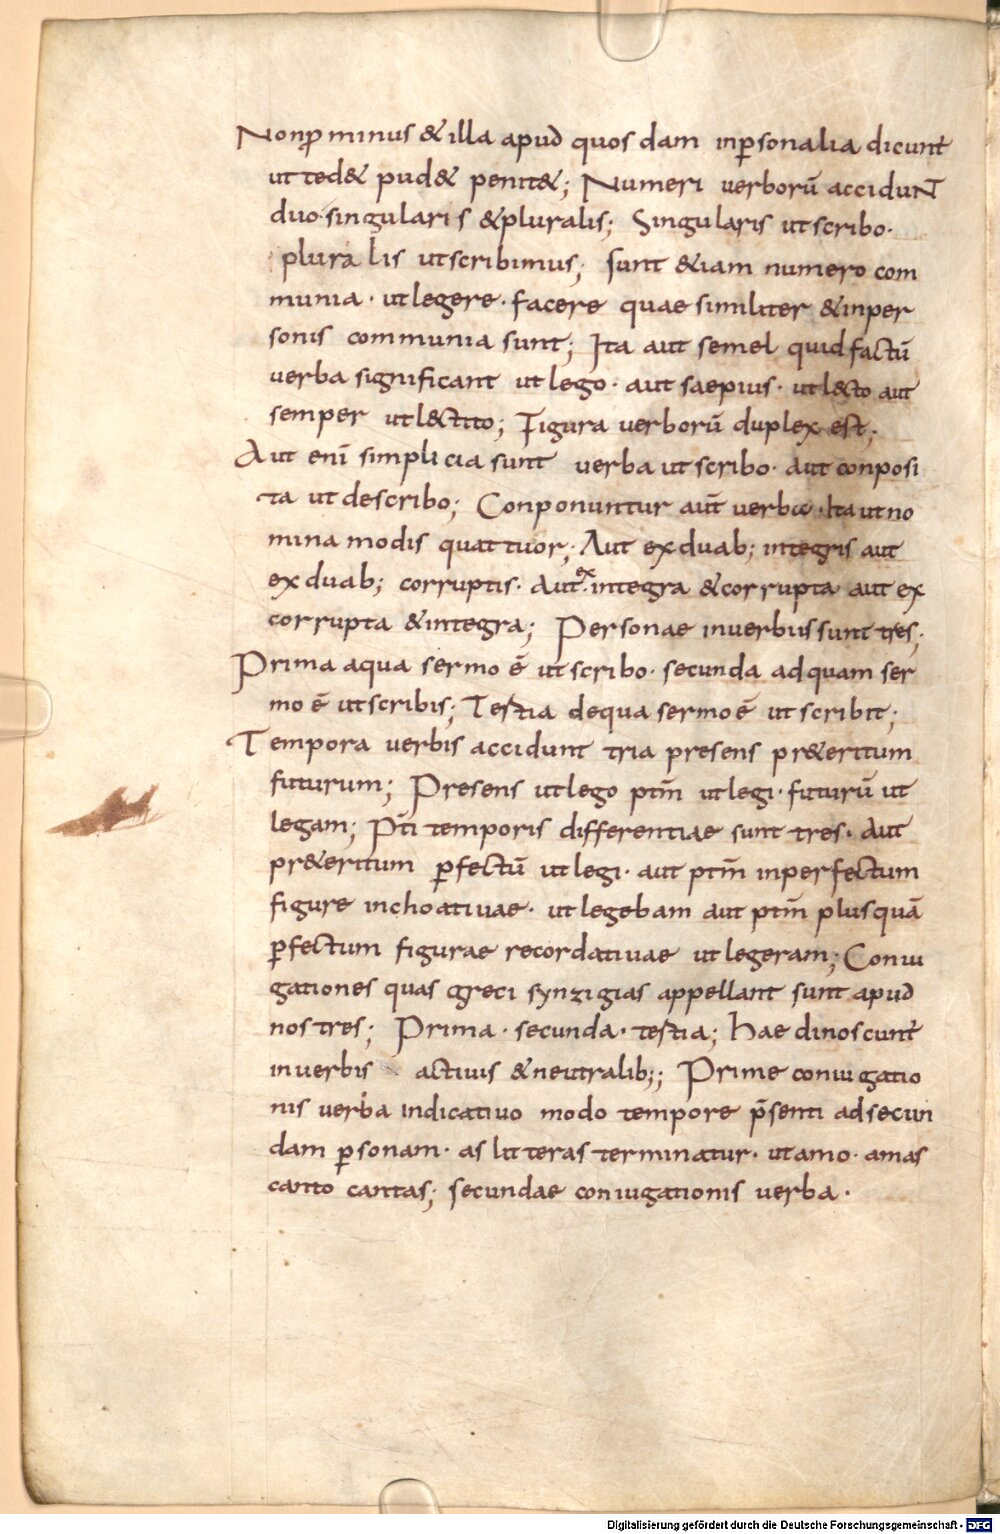 Non ꝓminus & illa apud quos dam inꝑsonalia dicunt
ut ted& pud& penit&; Numeri verborū accidunt
duo· singularis & pluralis; Singularis ut scribo·
pluralis ut scribimus; sunt &iam numero com
munia · ut legere · facere quae similiter & in per
sonis communia sunt; Ita aut semel quid factū
verba significant ut lego · aut saepius · ut l&cto aut
semper ut l&ctito; Figura verborū duplex est;
Aut enī simplicia sunt verba ut scribo · aut conposi
ta ut describo; Conponuntur aut̄ verba · Ita ut no
mina modis quattuor; Aut ex duab; integris aut
ex duab; corruptis · aut ex integra & corrupta aut ex
corrupta & integra; Personae in verbiis sunt tres·
Prima a qua sermo ē ut scribo · secunda ad quam ser
mo ē ut scribis; Testia de qua sermo ē ut scribit;
Tempora verbis accidunt tria presens pr&eritum
futurum; Presens ut lego ptm̄ ut legi · futurū ut
legam; Pt̄i temporis differentiae sunt tres · Aut
pr&eritum ꝑfectū ut legi · aut ptm̄ inperfectum
figure inchoativae · ut legebam aut ptm̄ plus quā
ꝑfectum figurae recordativae ut legeram; Coniu
gationes quas greci synzigias appellant sunt apud
nos tres; Prima · secunda · testia; hae dinoscunt̄
in verbis activis & neutralib;; Prime coniugatio
nis verba indicativo modo tempore p̄senti ad secun
dam ꝑsonam · as litteras terminatur · ut amo · amas
canto cantas; secundae coniugationis verba ·
Digitalisierung gefördert durch die Deutsche Forschungsgemeinschaft - DFG